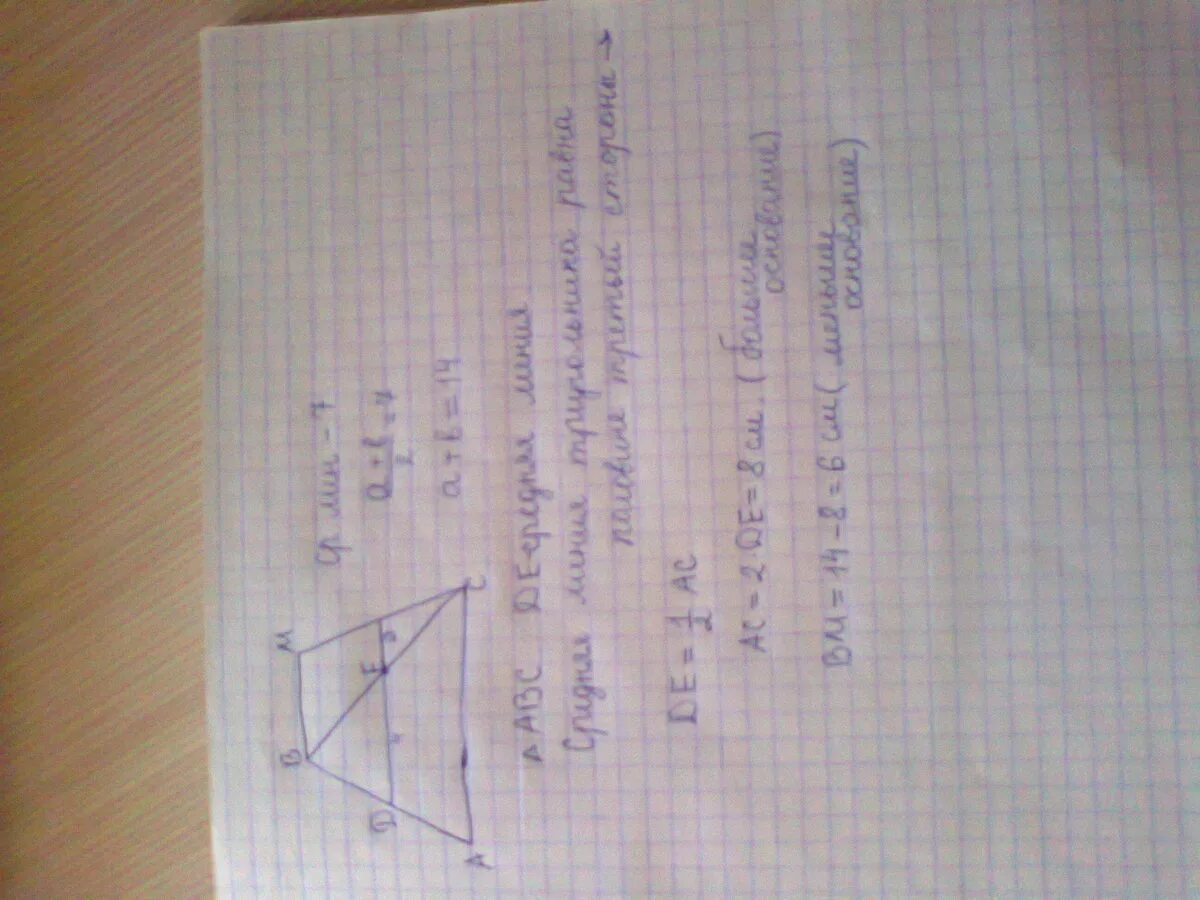 В М
D E 3
4
А С
Ср. лин – 7
a+b/2=7
a+b=14
△ABC DE-средняя линия
Средняя линия триугольника равна
половине третьй стороны →
DE=1/2 AC
AC=2·DE=8 см. (большее
основание)
BM=14-8=6 см (меньшее
основание)